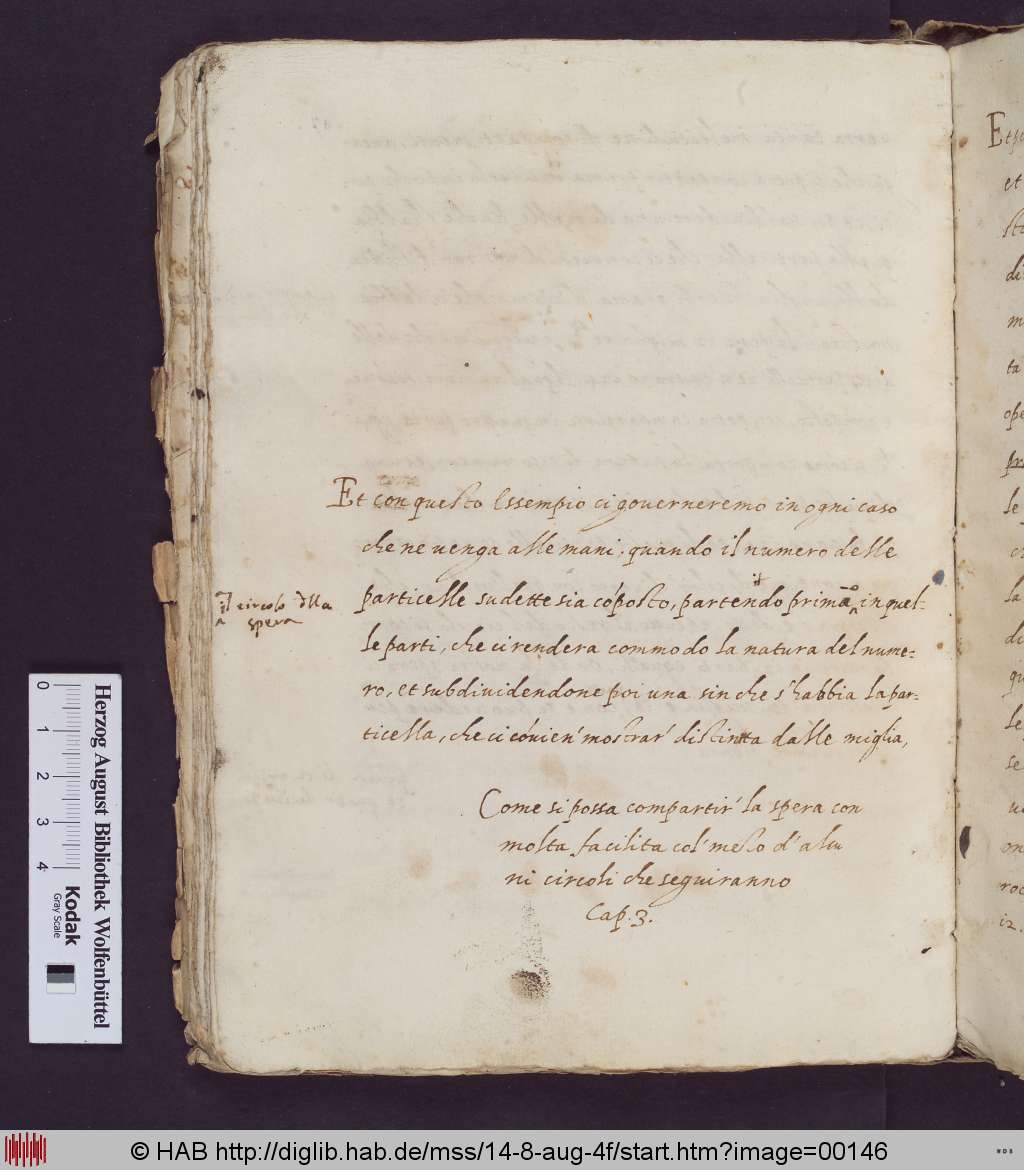 Et con questo Essempio ci gouerneremo in ogni caso
che ne uenga alle mani, quando il numero delle
particelle sudette sia cóposto, partendo prima in quel-
le parti, che ci rendera commodo la natura del nume-
ro, et subdiuidendone poi una sin che s'habbia la par-
ticella, che ci cóuien' mostrar' distinta dalle miglia,
il circolo d͠lla
spera
Come si possa compartir' la spera con
molta facilita col' mezo d' alcu
ni circoli che seguiranno
Cap. 3.
Et
et
di
m
ta
ope
le
la
di
qu
le
se
on
roc
12.
0 1 2 3 4
Kodak
Gray Scale
Herzog August Bibliothek Wolfenbüttel
© HAB http://diglib.hab.de/mss/14-8-aug-4f/start.htm?image=00146